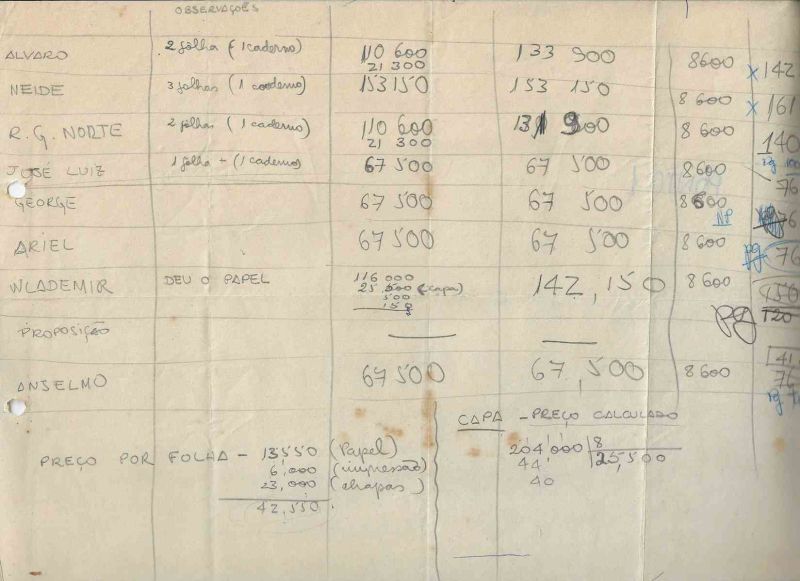 OBSERVAÇÕES
ALVARO 2 folha (1 caderno) 110 600 133 900 8600 x 142
21 300
NEIDE 3 folhas (1 caderno) 153150 153 150 8 600 x 161
R. G. NORTE 2 folhas (1 caderno) 110 600 131 900 8 600 140
21 300
JOSÉ LUIZ 1 folha - (1 caderno) 67 500 67 500 8600 pg
76
GEORGE 67 500 67 500 8600
NP 76
ARIEL 67 500 67 500 8600 pg 76
WLADEMIR DEU O PAPEL 116 000 142,150 8 600
25,500 (capa)
500
150
pg 120
PROPOSIÇÃO
41
ANSELMO 67 500 67,500 8 600 76
pg
CAPA - PREÇO CALCULADO
PREÇO POR FOLHA - 13550 (Papel) 204 000 8
6,000 (impressão) 44 25,500
23,000 (chapas) 40
42,550